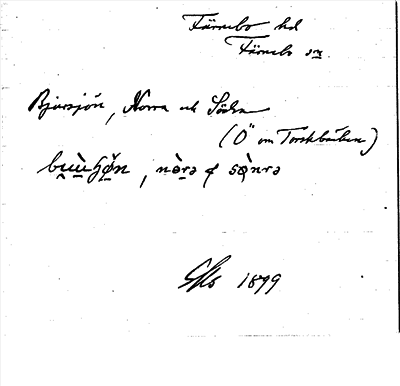 Färnebo hd
Färnebo sn
Bjursjön, Norra och Södra
(Ö om Torskbäcken)
nò̱rə & sø̀nrə
1899